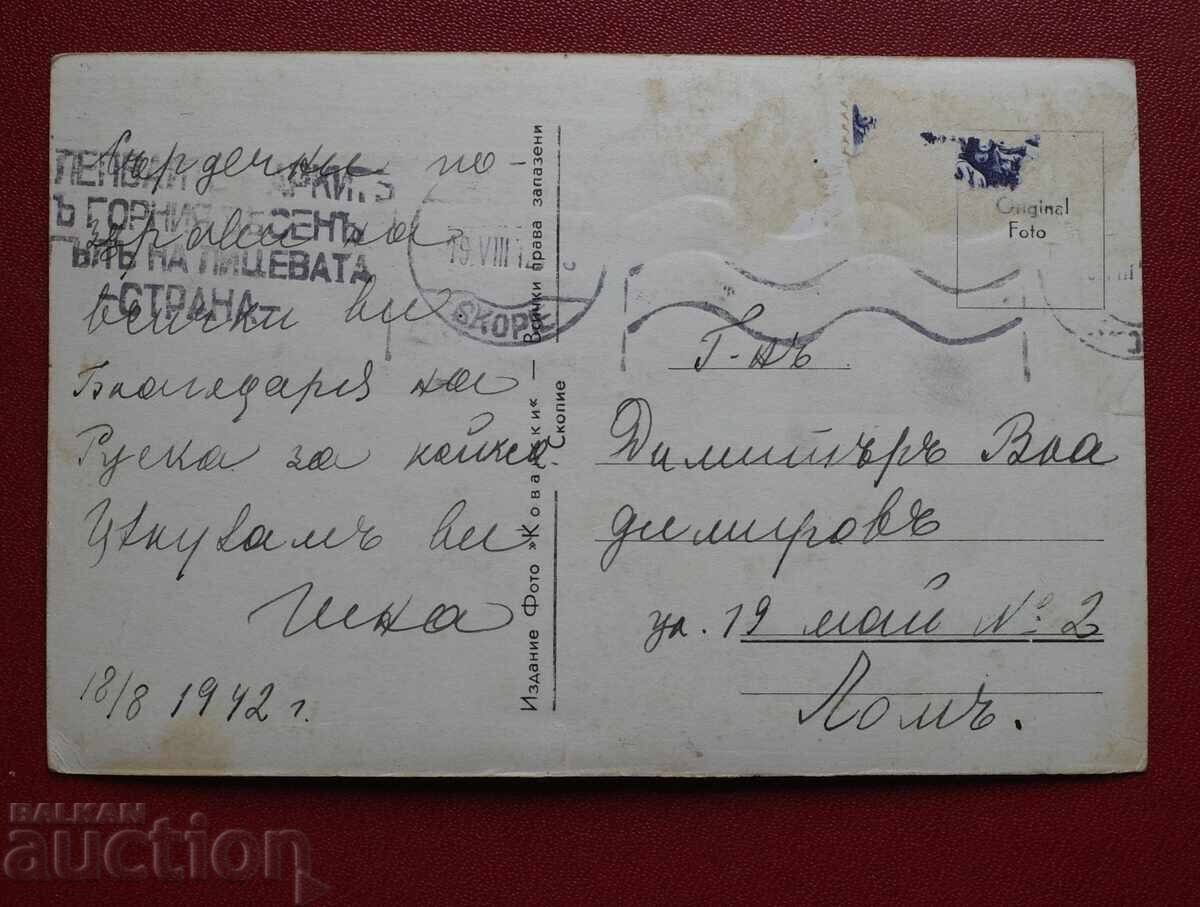 Сърдечни по-
здрави на
всички ви
Благодаря на
Руска за
Цѣлувамъ ви
18/8 1942 г.
ГОРНИЯ ДЕСЕНЪ
НА ЛИЦЕВАТА
-СТРАНА-
19.VIII
SKOPJE
Издание Фото »Ковачески« — Всички права запазени
Скопие
Original
Foto
Г-нъ
Димитъръ Вла
димировъ
ул. 19 май № 2
Ломъ.
BALKAN
auction